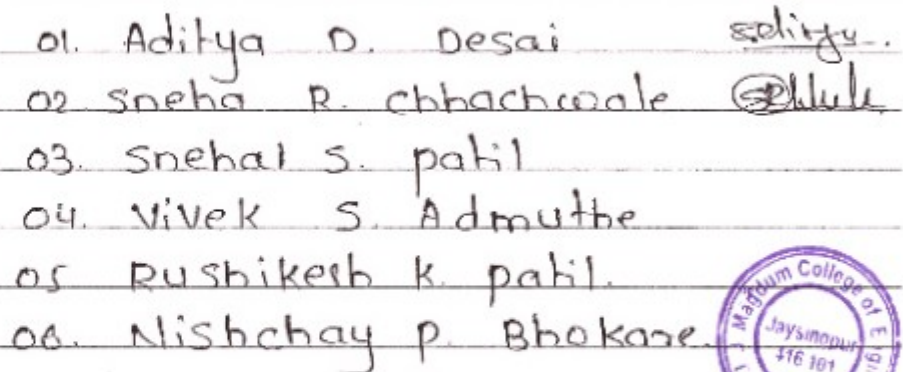 01. Aditya D. Desai
02 Sneha R. Chhachwale
03. Snehal S. patil
04. Vivek S. Admuthe
05 Rushikesh K. patil.
06. Nishchay P. Bhokare.
Magdum College of
Jaysingpur
416 101